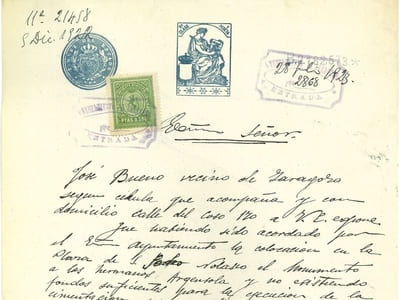 11ª 21458
5 Dic. 1922
28
2868
ENTRADA
Excmo Señor.
José Bueno vecino de Zaragoza
segun cédula que acompaña y con
domicilio calle del Coso 170 a V.E. expone
Que habiendo sido acordado por
el Ayuntamiento la colocacion en la
Plaza de S. Pedro Nolasco el Monumento
a los hermanos Argensola y no existiendo
fondos suficientes para la ejecucion de la
cimentacion